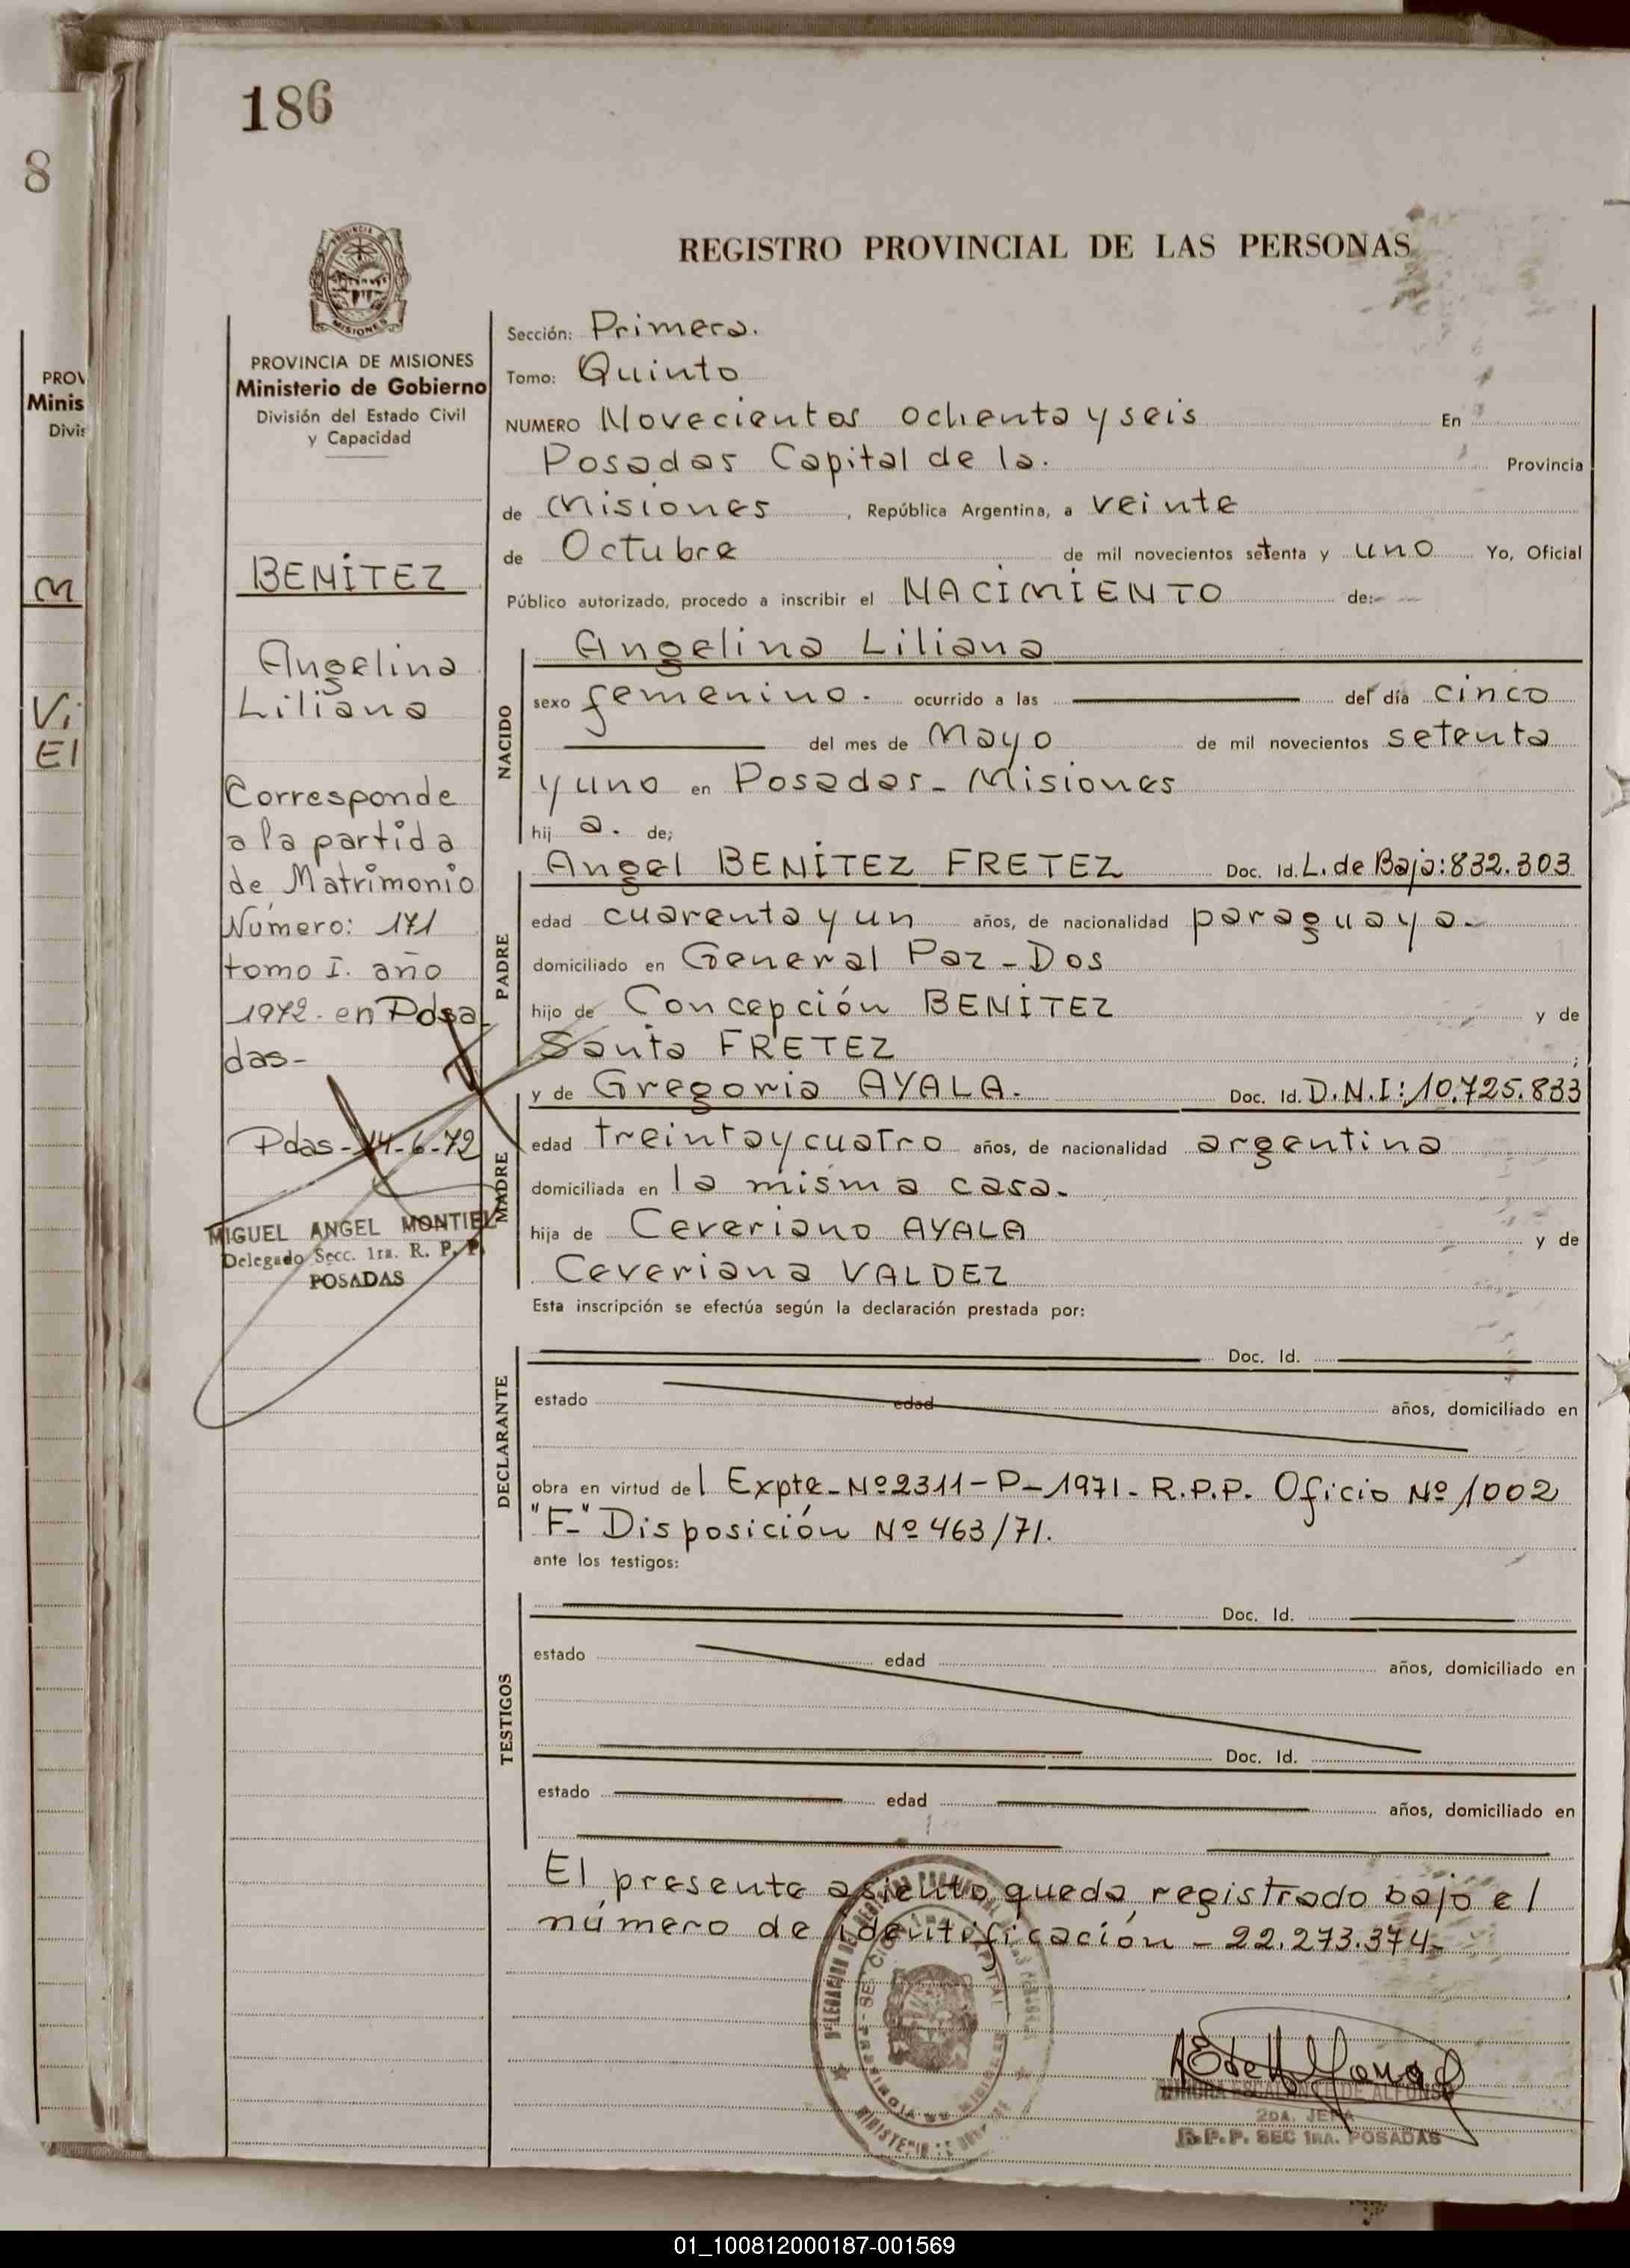 186
8
REGISTRO PROVINCIAL DE LAS PERSONAS
PROVINCIA
MISIONES
PROVINCIA DE MISIONES
Ministerio de Gobierno
División del Estado Civil
y Capacidad
BENÍTEZ
Angelina
Liliana
Corresponde
a la partida
de Matrimonio
Número: 171
tomo I. año
1972- en Posa
das-
Pdas-14-6-72
MIGUEL ANGEL MONTIEL
Delegado Secc. 1ra. R. P. P.
POSADAS
PROV
Minis
Divis
M
Vi
El
Sección: Primera.
Tomo: Quinto
NUMERO Novecientos ochenta y seis En
Posadas Capital de la. Provincia
de Misiones , República Argentina, a veinte
de Octubre de mil novecientos setenta y uno Yo, Oficial
Público autorizado, procedo a inscribir el NACIMIENTO de:
NACIDO
Angelina Liliana
sexo femenino. ocurrido a las del día cinco
del mes de Mayo de mil novecientos setenta
y uno en Posadas- Misiones
hij a. de;
PADRE
Angel BENÍTEZ FRETEZ Doc. Id. L. de Baja: 832.303
edad cuarenta y un años, de nacionalidad paraguaya-
domiciliado en General Paz - Dos
hijo de Concepción BENÍTEZ y de
Santa FRETEZ ;
MADRE
y de Gregoria AYALA. Doc. Id. D.N.I: 10.725.833
edad treinta y cuatro años, de nacionalidad argentina
domiciliada en la misma casa.
hija de Ceveriano AYALA y de
Ceveriana VALDEZ
Esta inscripción se efectúa según la declaración prestada por:
DECLARANTE
Doc. Id.
estado edad años, domiciliado en
obra en virtud del Expte- Nº 2311-P-1971- R.P.P. Oficio Nº 1002
"F-" Disposición Nº 463/71.
ante los testigos:
TESTIGOS
Doc. Id.
estado edad años, domiciliado en
Doc. Id.
estado edad años, domiciliado en
El presente asiento queda registrado bajo el
número de identificación - 22.273.374-
2DA. JEFA
R.P.P. SEC 1RA. POSADAS
01_100812000187-001569